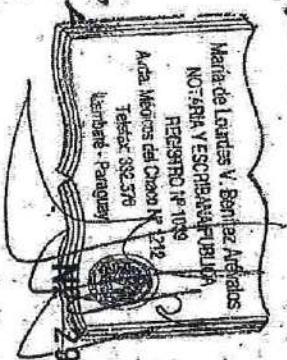 María de Lourdes V. Benítez
NOTARIA Y ESCRIBANA PUBLICA
REGISTRO Nº 1039
Avda. Médicos del Chaco Nº 1.212
Telefax: 332.576
Lambaré - Paraguay